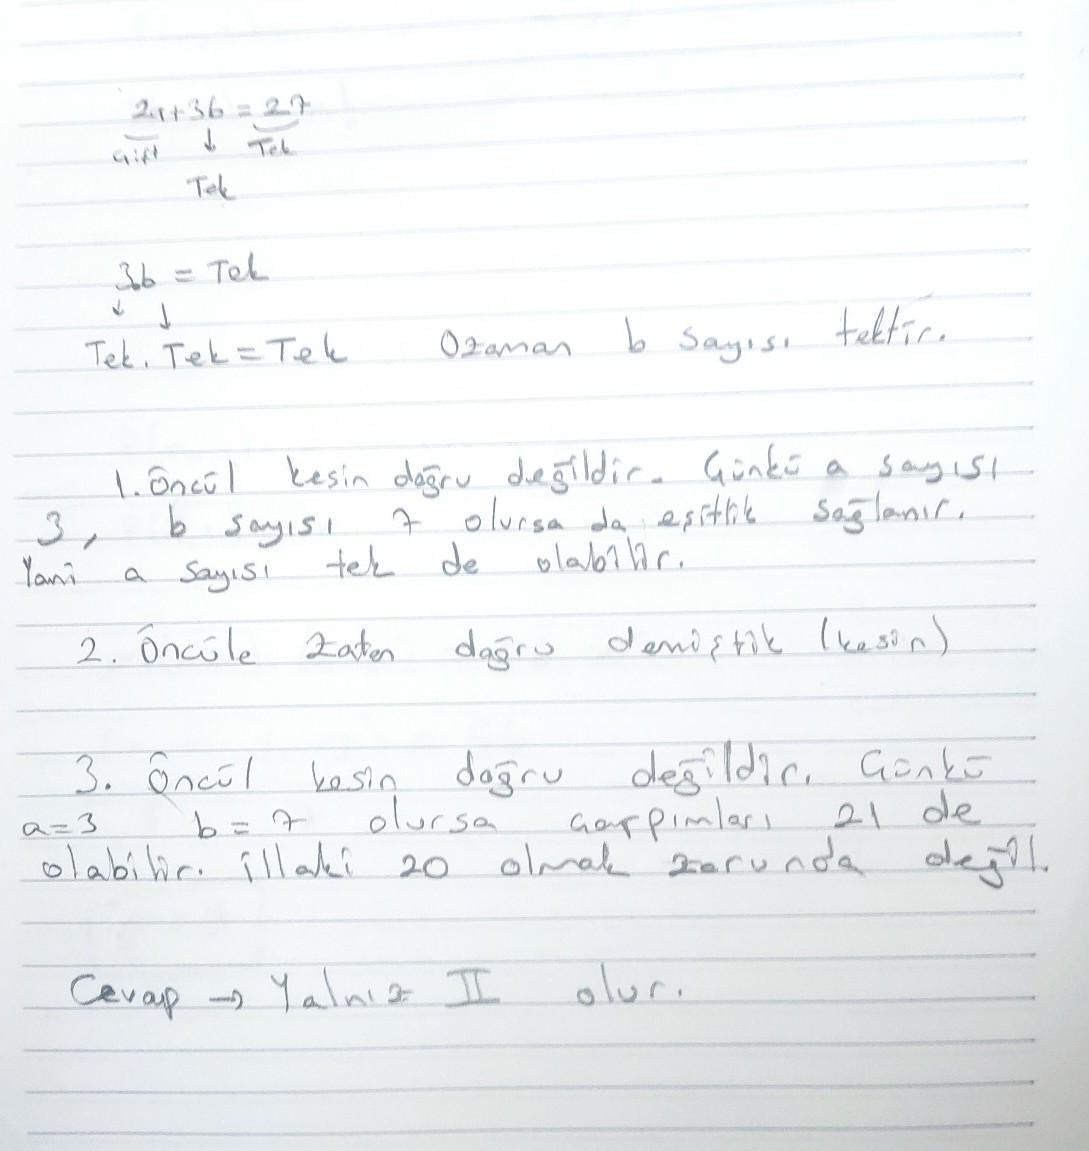 2a+3b = 27
Çift ↓ Tek
Tek
3b = Tek
↓ ↓
Tek. Tek = Tek Ozaman b sayısı tektir.
1. Öncül kesin doğru değildir. Çünkü a sayısı
3, b sayısı 7 olursa da eşitlik sağlanır.
Yani a sayısı tek de olabilir.
2. Öncüle zaten doğru demiştik (kesin)
3. Öncül kesin doğru değildir. Çünkü
a=3 b=7 olursa çarpımları 21 de
olabilir. illaki 20 olmak zorunda değil.
Cevap → Yalnız II olur.